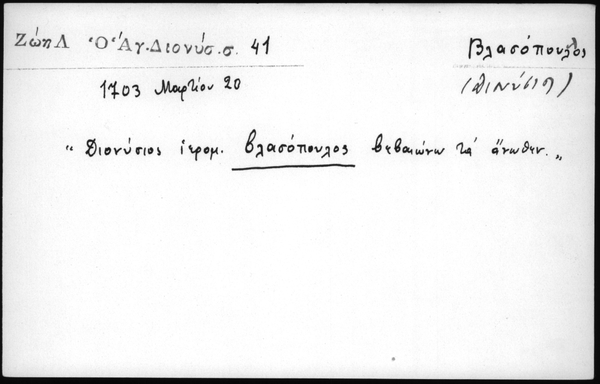 Ζώη Λ Ὁ Ἅγ. Διονύσ. σ. 41
Βλασόπουλος
(Διονύσιος)
1703 Μαρτίου 20
" Διονύσιος ἱερομ. Βλασόπουλος βεβαιώνω τά ἄνωθεν. "